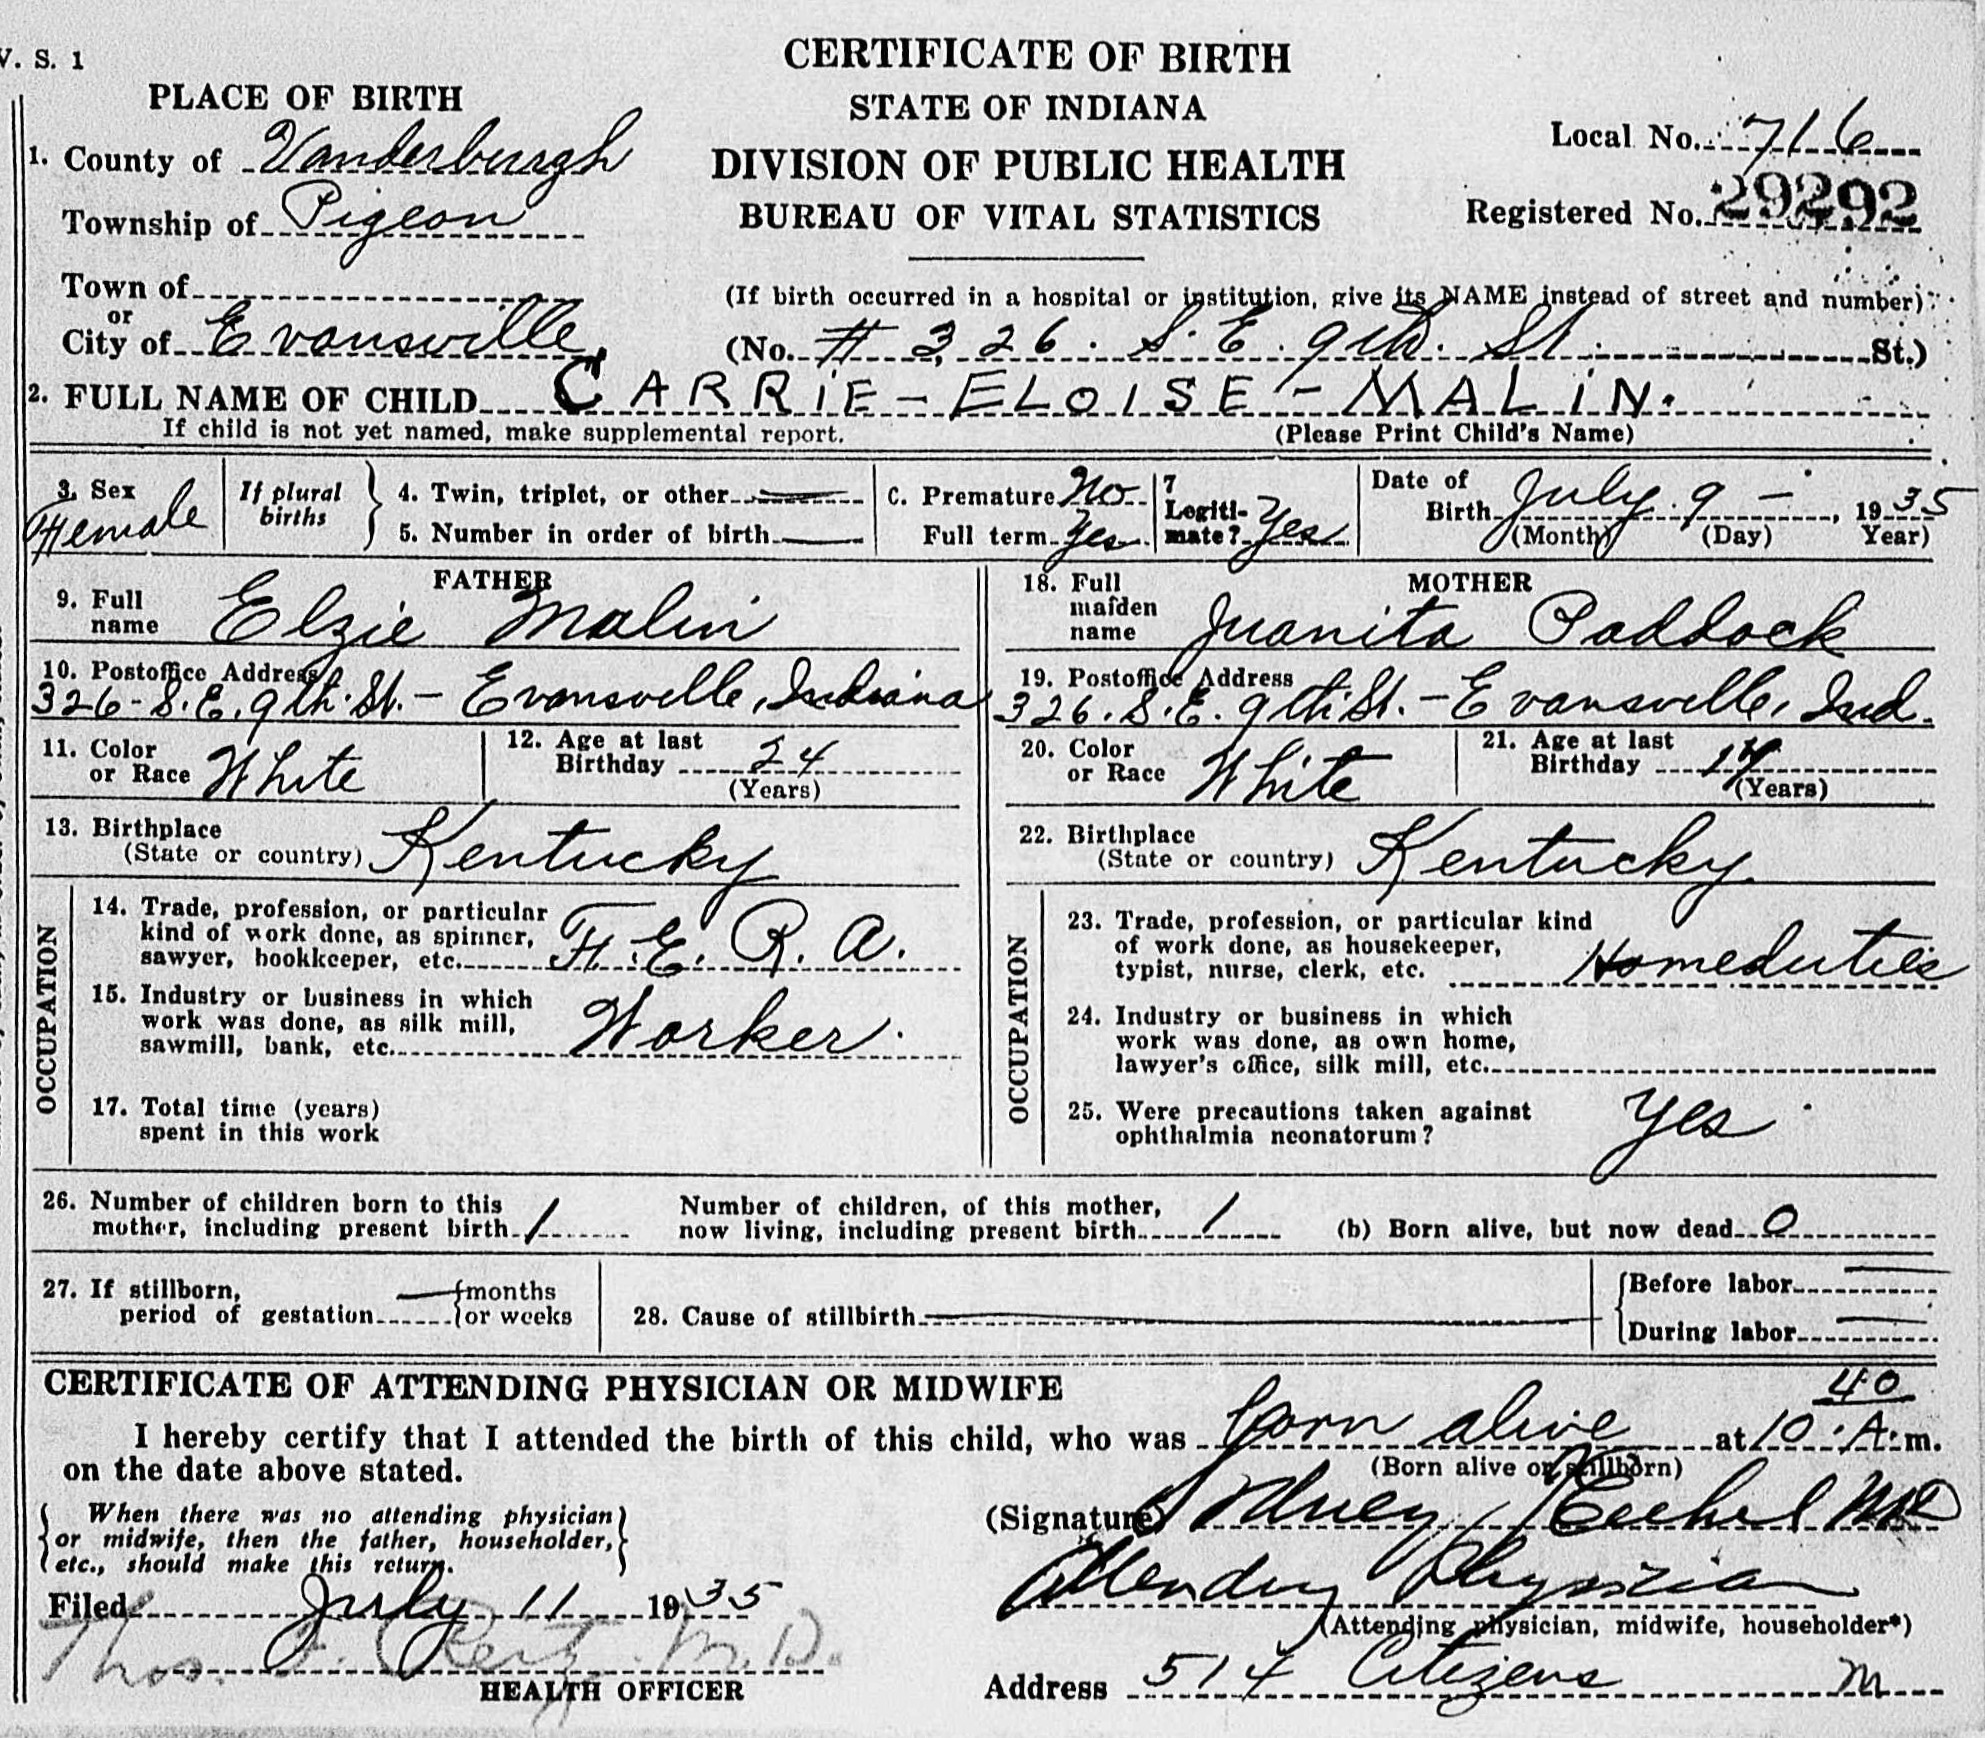 V. S. 1
CERTIFICATE OF BIRTH
PLACE OF BIRTH
STATE OF INDIANA
Local No. 716
1. County of Vanderburgh
DIVISION OF PUBLIC HEALTH
Township of Pigeon
BUREAU OF VITAL STATISTICS
Registered No. 29292
Town of
or
City of Evansville
(If birth occurred in a hospital or institution, give its NAME instead of street and number)
(No. # 326. S. E. 9th. St. St.)
2. FULL NAME OF CHILD CARRiE - ELOISE - MALiN.
If child is not yet named, make supplemental report. (Please Print Child's Name)
3. Sex Female
If plural births
4. Twin, triplet, or other
5. Number in order of birth
C. Premature No
Full term Yes
7 Legiti-
mate? Yes
Date of
Birth July 9 - , 1935
(Month) (Day) Year)
FATHER
9. Full name Elzie Malin
10. Postoffice Address
326 - S. E. 9th. St. - Evansville, Indiana
11. Color or Race White
12. Age at last Birthday 24 (Years)
13. Birthplace (State or country) Kentucky
OCCUPATION
14. Trade, profession, or particular
kind of work done, as spinner,
sawyer, bookkeeper, etc. F. E. R. A.
15. Industry or business in which
work was done, as silk mill,
sawmill, bank, etc. Worker.
17. Total time (years)
spent in this work
MOTHER
18. Full maiden name Juanita Paddock
19. Postoffice Address
326. S. E. 9th. St. - Evansville, Ind.
20. Color or Race White
21. Age at last Birthday (Years)
22. Birthplace (State or country) Kentucky
OCCUPATION
23. Trade, profession, or particular kind
of work done, as housekeeper,
typist, nurse, clerk, etc. Homeduties
24. Industry or business in which
work was done, as own home,
lawyer's office, silk mill, etc.
25. Were precautions taken against
ophthalmia neonatorum? Yes
26. Number of children born to this
mother, including present birth 1
Number of children, of this mother,
now living, including present birth 1
(b) Born alive, but now dead 0
27. If stillborn,
period of gestation {months
{or weeks
28. Cause of stillbirth
{Before labor
{During labor
CERTIFICATE OF ATTENDING PHYSICIAN OR MIDWIFE
I hereby certify that I attended the birth of this child, who was born alive at 10 40 A. m.
on the date above stated. (Born alive or stillborn)
{ When there was no attending physician }
{ or midwife, then the father, householder, }
{ etc., should make this return. }
(Signature) Sidney MD
Attending Physician
(Attending physician, midwife, householder*)
Filed July 11 1935
Thos. M.D.
HEALTH OFFICER
Address 514 Citizens